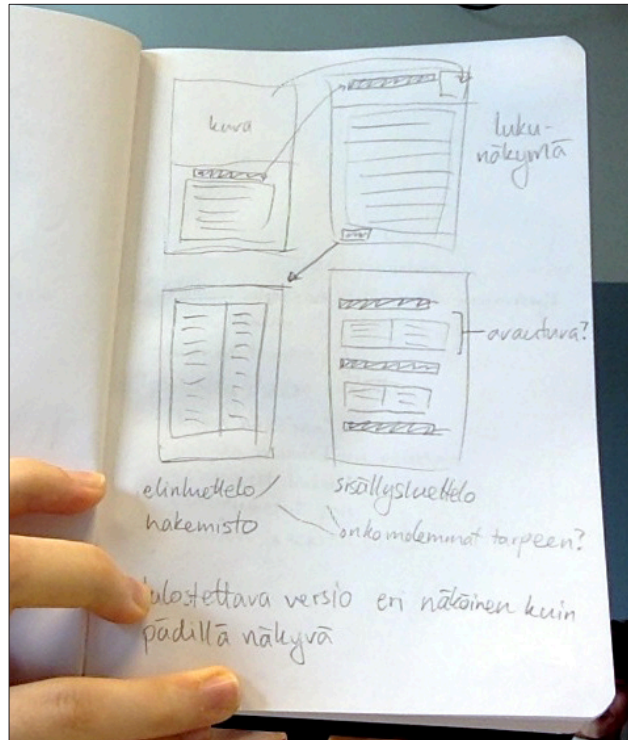 kuva
luku-
näkymä
avautuva?
elinluettelo/
hakemisto
sisällysluettelo
onko molemmat tarpeen?
tulostettava versio eri näköinen kuin
pädillä näkyvä